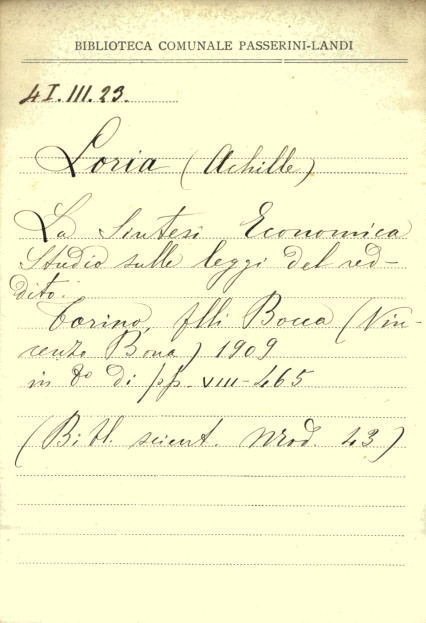 BIBLIOTECA COMUNALE PASSERINI-LANDI
4I.III.23.
Loria (Achille)
La Sintesi Economica
Studio sulle leggi del red-
dito.
Torino, flli Bocca (Vin-
cenzo Bona) 1909
in 8° di pp. VIII-465
(Bibl. scient. Mod. 43)